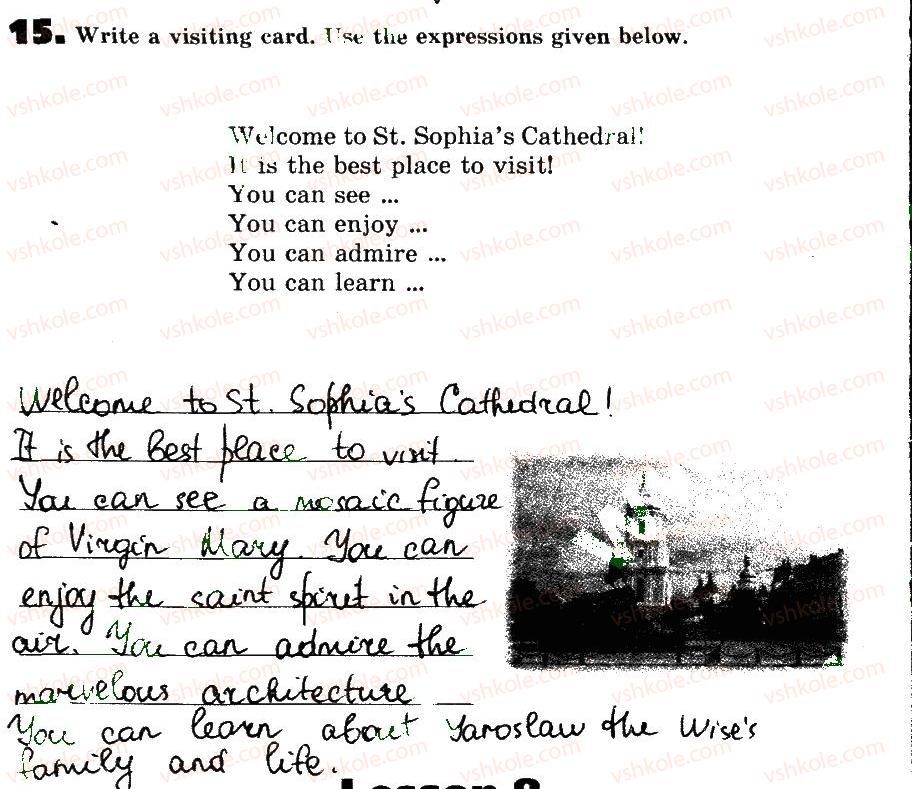 15. Write a visiting card. Use the expressions given below.
Welcome to St. Sophia's Cathedral!
It is the best place to visit!
You can see ...
You can enjoy ...
You can admire ...
You can learn ...
Welcome to St. Sophia's Cathedral!
It is the best place to visit.
You can see a mosaic figure
of Virgin Mary. You can
enjoy the saint spirit in the
air. You can admire the
marvelous architecture
You can learn about Yaroslaw the Wise's
family and life.
Lesson
vshkole.com